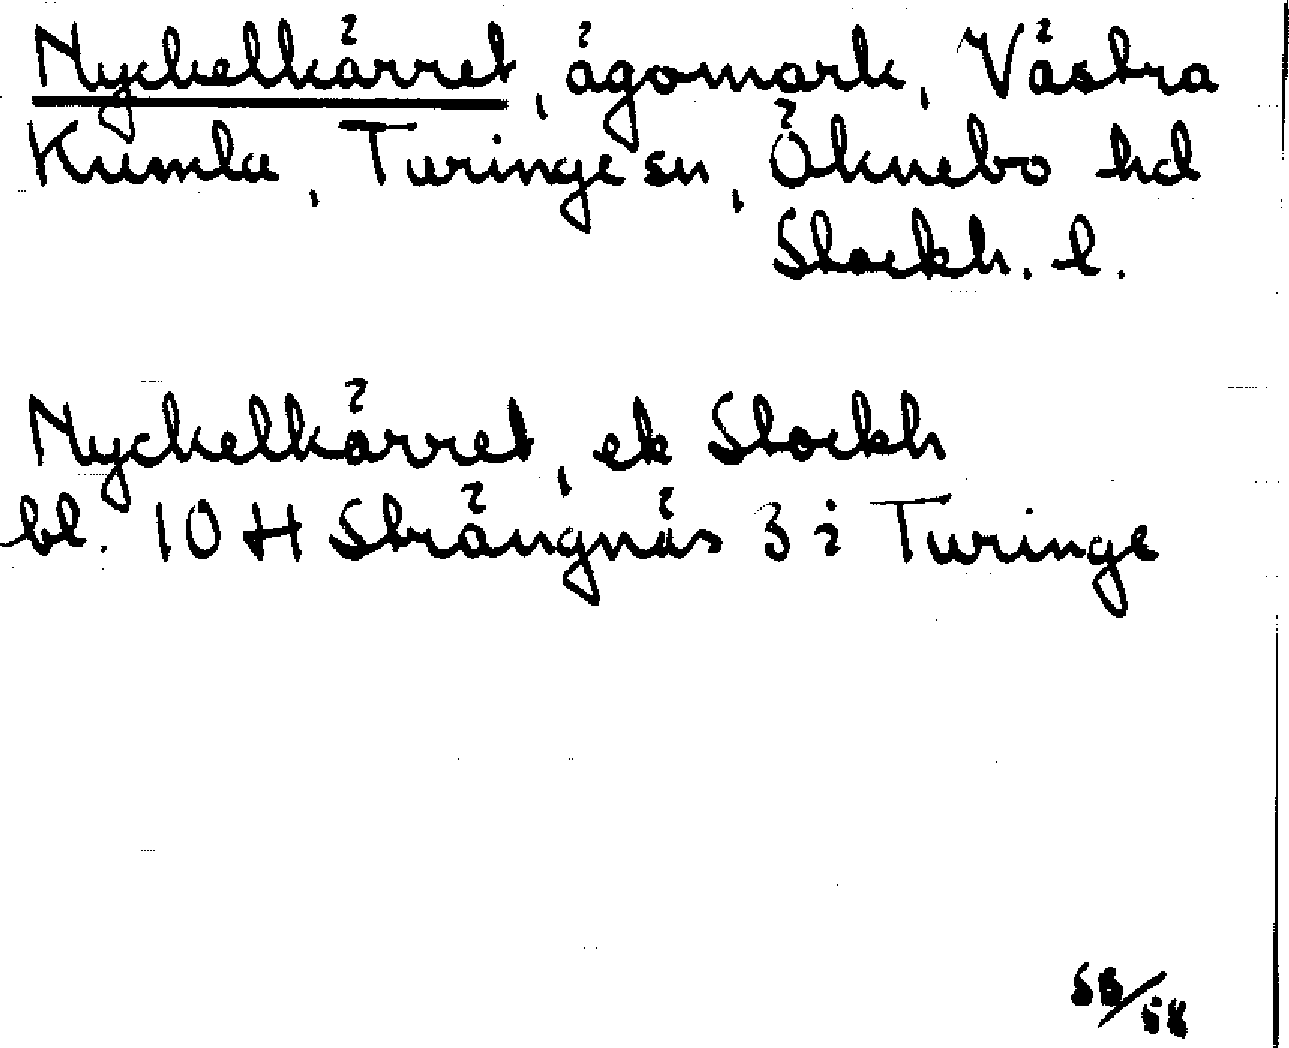 Nyckelkärret, ägomark, Västra
Kumla, Turinge sn, Öknebo hd
Stockh. l.
Nyckelkärret, ek Stockh
bl. 10 H Strängnäs 3 i Turinge